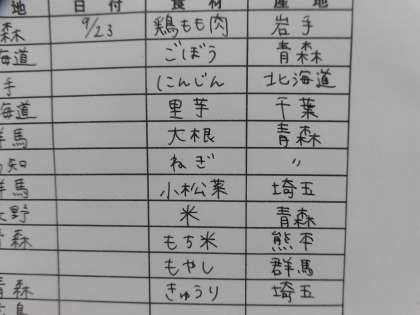 地 日付 食材 産地
森 9/23 鶏もも肉 岩手
海道 ごぼう 青森
手 にんじん 北海道
海道 里芋 千葉
群馬 大根 青森
知 ねぎ 〃
群馬 小松菜 埼玉
野 米 青森
青森 もち米 熊本
もやし 群馬
青森 きゅうり 埼玉